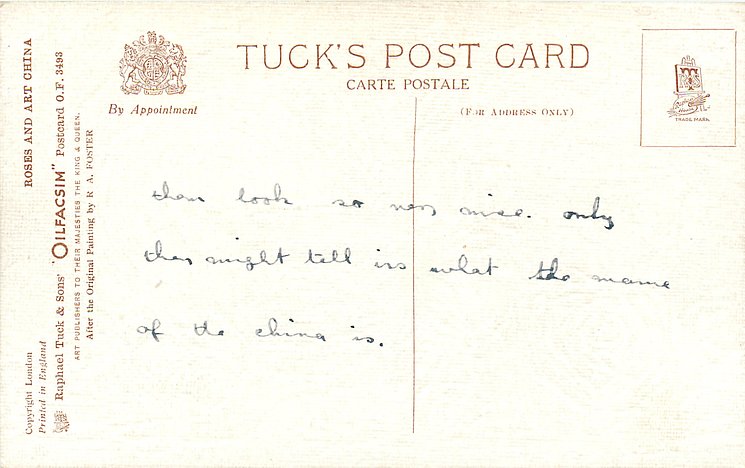 TUCK'S POST CARD
CARTE POSTALE
By Appointment
(FOR ADDRESS ONLY)
TRADE MARK
ROSES AND ART CHINA
Raphael Tuck & Sons' "OILFACSIM" Postcard O.F. 3493
ART PUBLISHERS TO THEIR MAJESTIES THE KING & QUEEN.
After the Original Painting by R. A. FOSTER
Copyright London
Printed in England
look so nice. only
might tell us what the name
of the china is.